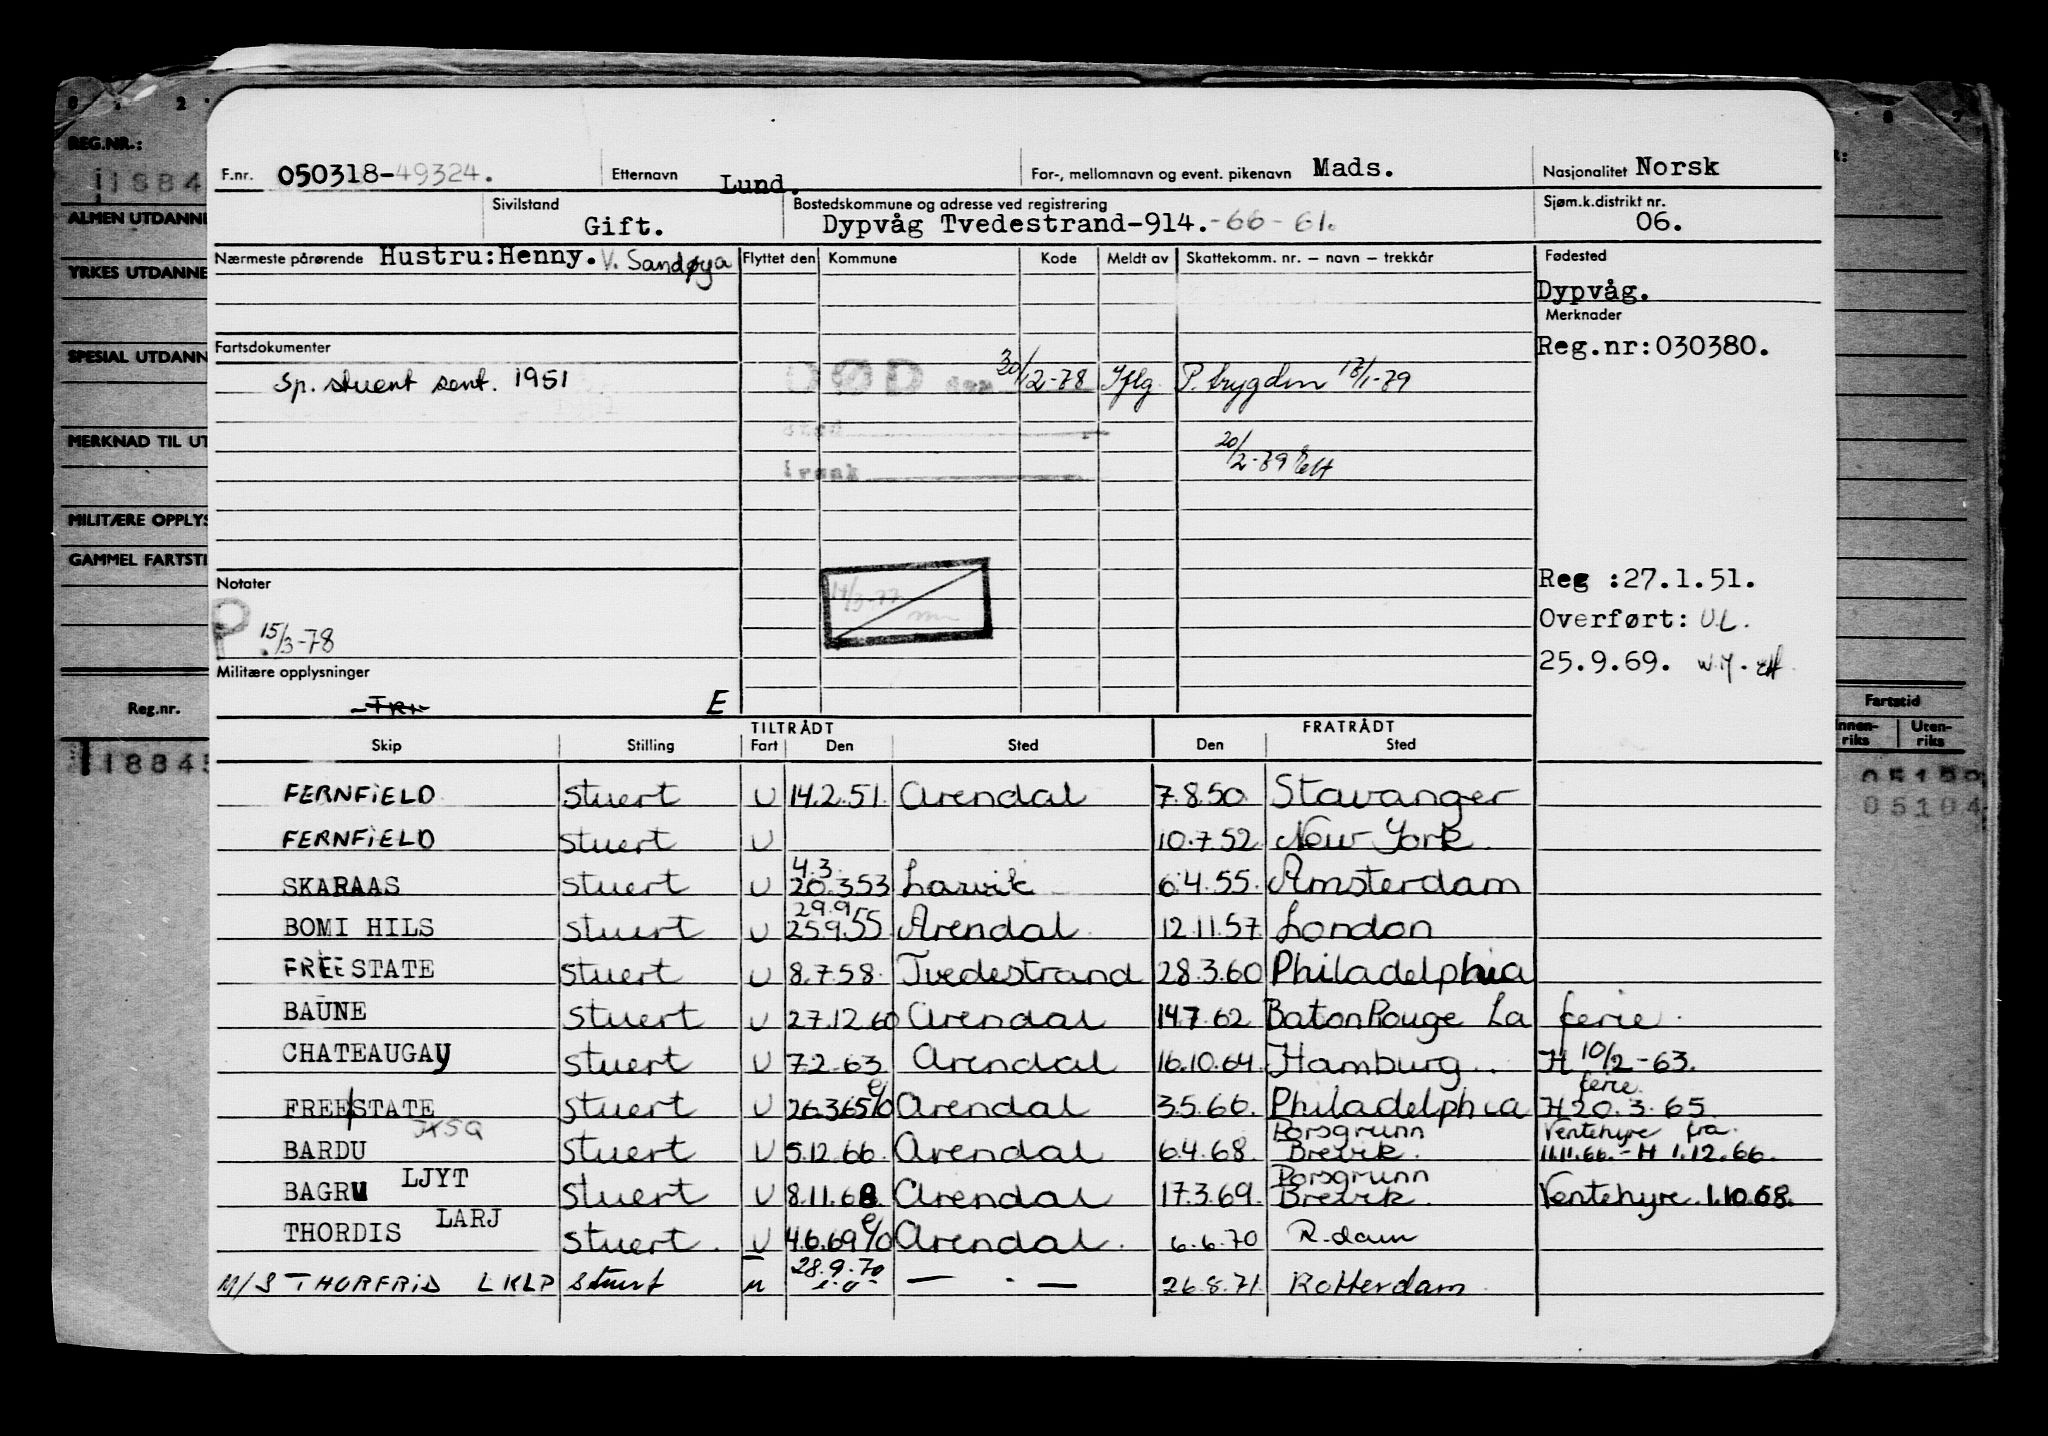 REG.NR.:
ALMEN UTDANNE
YRKES UTDANNE
SPESIAL UTDANN
MERKNAD TIL UT
MILITÆRE OPPLYS
GAMMEL FARTSTI
Reg.nr.
11884
Fartstid
Innen-riks Uten-riks
05104
F.nr. 050318-49324. Etternavn Lund. For-, mellomnavn og event. pikenavn Mads. Nasjonalitet Norsk
Sivilstand Gift. Bostedskommune og adresse ved registrering Dypvåg Tvedestrand-914.-66-61. Sjøm.k.distrikt nr. 06.
Nærmeste pårørende Hustru:Henny. V. Sandøya Flyttet den Kommune Kode Meldt av Skattekomm. nr. – navn – trekkår Fødested
Dypvåg.
Merknader
Reg.nr:030380.
Fartsdokumenter
Sp. stuert sert. 1951 DØD den 30/12-78 Iflg. P. trygden 18/1-79
sted
20/2-79 EH
Notater
P 15/3-78
14/3-77
Reg :27.1.51.
Overført: U.L.
25.9.69. W.M. EH
Militære opplysninger
E
TILTRÅDT FRATRÅDT
Skip Stilling Fart Den Sted Den Sted
FERNFIELD stuert U 14.2.51. Arendal 7.8.50. Stavanger
FERNFIELD stuert U 10.7.52 New York.
SKARAAS stuert U 4.3. 20.3.53 Larvik 6.4.55. Amsterdam
BOMI HILS stuert U 29.9 25.9.55 Arendal. 12.11.57. London
FREESTATE stuert U 8.7.58. Tvedestrand 28.3.60 Philadelphia
BAUNE stuert U 27.12.60 Arendal 14.7.62 Baton Rouge La ferie.
CHATEAUGAY stuert U 7.2.63 Arendal 16.10.64 Hamburg. H 10/2-63.
FREE/STATE stuert U 26.3.65 e/o Arendal 3.5.66. Philadelphia ferie. H 20.3.65.
JXSQ
BARDU stuert U 5.12.66. Arendal 6.4.68. Porsgrunn Brevik. Ventehyre fra. 11.11.66.-H 1.12.66.
BAGRU LJYT stuert U 8.11.68. Arendal 17.3.69. Porsgrunn Brevik. Ventehyre. 1.10.68.
THORDIS LARJ stuert. U 4.6.69 e/o Arendal. 6.6.70 R.dam
M/S THORFRID LKLP stuert u 28.9.70 e.o. — . — 26.8.71. Rotterdam.